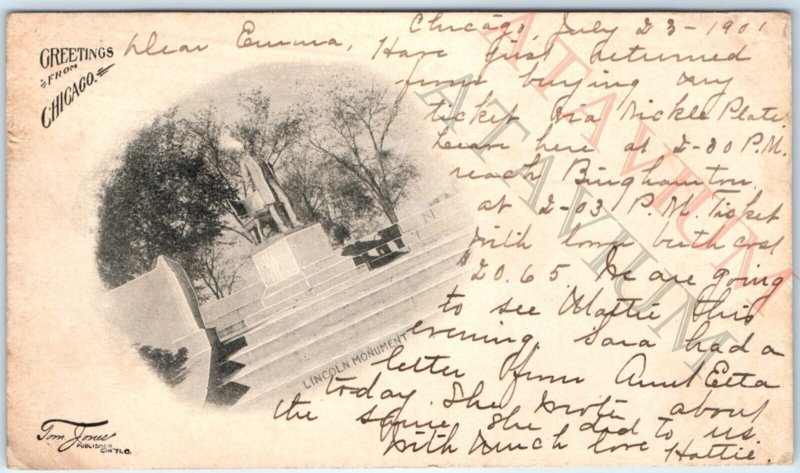 GREETINGS
FROM
CHICAGO.
Chicago, July 23-1901
Dear Emma, Have just returned
from buying my
ticket via Nickle Plate.
Leave here at 2-30 P.M.
reach Binghamton
at 2-03 P.M. Ticket
with lower birth cost
$20.65. We are going
to see Mattie this
evening. Sara had a
letter from Aunt Etta
today. She wrote about
the same she did to us.
With much love Hattie.
LINCOLN MONUMENT
Tom Jones
PUBLISHER
CIN'TI.O.
ATAVIUM
ATAVIUM